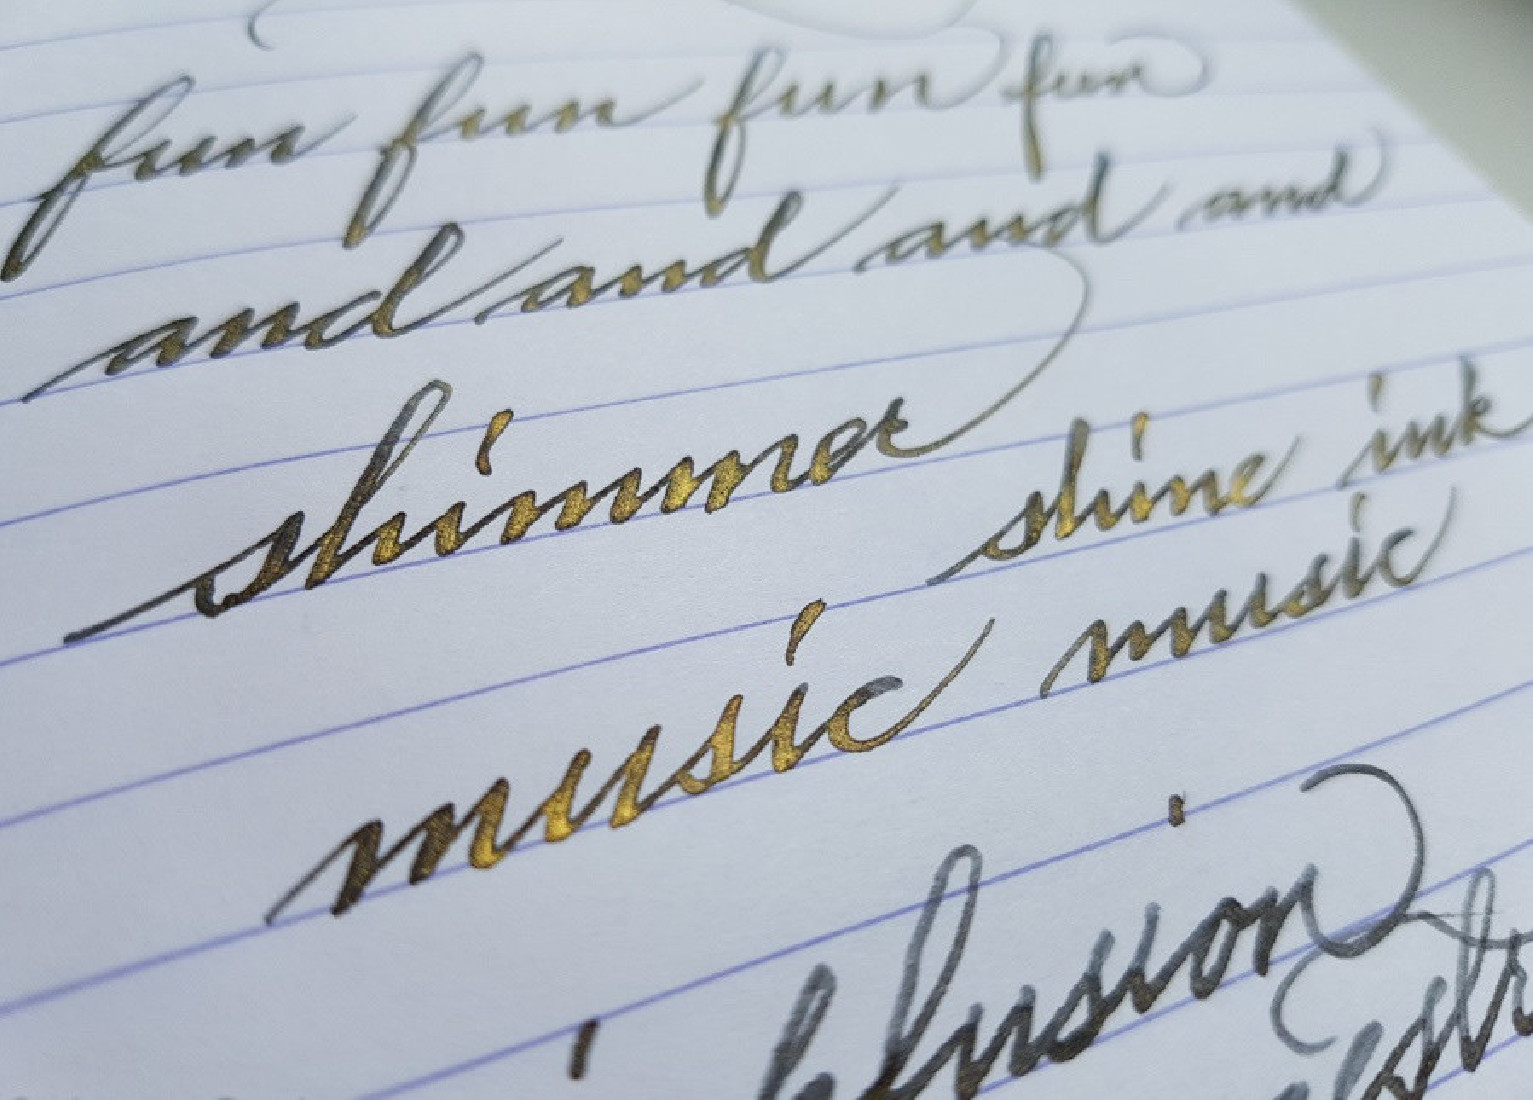 fun fun fun fun
and and and and
shimmer
shine ink
music music